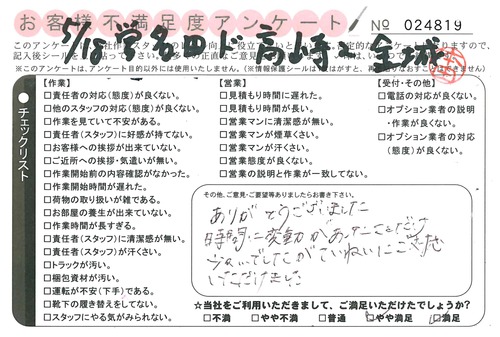 お客様不満足度アンケート
№ 024819
※このアンケートは、アンケート目的以外には使用しません。
チェックリスト
【作業】
□責任者の対応(態度)が良くない。
□他のスタッフの対応(態度)が良くない。
□作業を見ていて不安がある。
□責任者(スタッフ)に好感が持てない。
□お客様への挨拶が出来ていない。
□ご近所への挨拶・気遣いが無い。
□作業開始前の内容確認がなかった。
□作業開始時間が遅れた。
□荷物の取り扱いが雑である。
□お部屋の養生が出来ていない。
□作業時間が長すぎる。
□責任者(スタッフ)に清潔感が無い。
□責任者(スタッフ)が汗くさい。
□トラックが汚い。
□梱包資材が汚い。
□運転が不安(下手)である。
□靴下の履き替えをしてない。
□スタッフにやる気がみられない。
【営業】
□見積もり時間に遅れた。
□見積もり時間が長い。
□営業マンに清潔感が無い。
□営業マンが煙草くさい。
□営業マンが汗くさい。
□営業態度が良くない。
□営業の説明と作業が一致してない。
【受付・その他】
□電話の対応が良くない。
□オプション業者の説明
・作業が良くない。
□オプション業者の対応
(態度)が良くない。
その他、ご意見・ご要望等ありましたらお書き下さい。
ありがとうございました
時間に変動があったことだけ
ていねいに
いただけました
☆当社をご利用いただきまして、ご満足いただけたでしょうか?
□不満 □やや不満 □普通 □やや満足 □満足